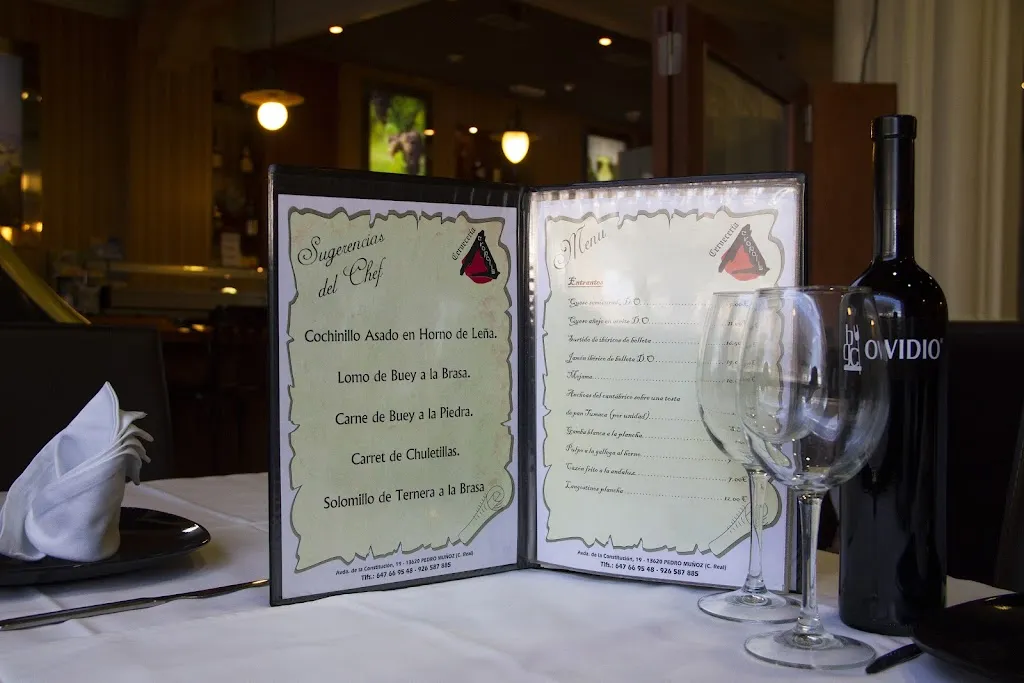 Sugerencias
del Chef
Cervecería
Cochinillo Asado en Horno de Leña.
Lomo de Buey a la Brasa.
Carne de Buey a la Piedra.
Carret de Chuletillas.
Solomillo de Ternera a la Brasa
Avda. de la Constitución, 19 - 13620 PEDRO MUÑOZ (C. Real)
Tlfs.: 647 66 95 48 - 926 587 885
Menu
Cervecería
Entrantes
Queso semicurado, D.O.
Queso añejo en aceite D.O.
Surtido de ibéricos de bellota
Jamón ibérico de bellota D.O.
Mojama
Anchoas del cantábrico sobre una tosta
de pan Tumaca (por unidad)
Gamba blanca a la plancha
Pulpo a la gallega al horno
Cazón frito a la andaluza
7.00€
Langostinos plancha
12.00€
Avda. de la Constitución, 19 - 13620 PEDRO MUÑOZ (C. Real)
Tlfs.: 647 66 95 48 - 926 587 885
VIDIO